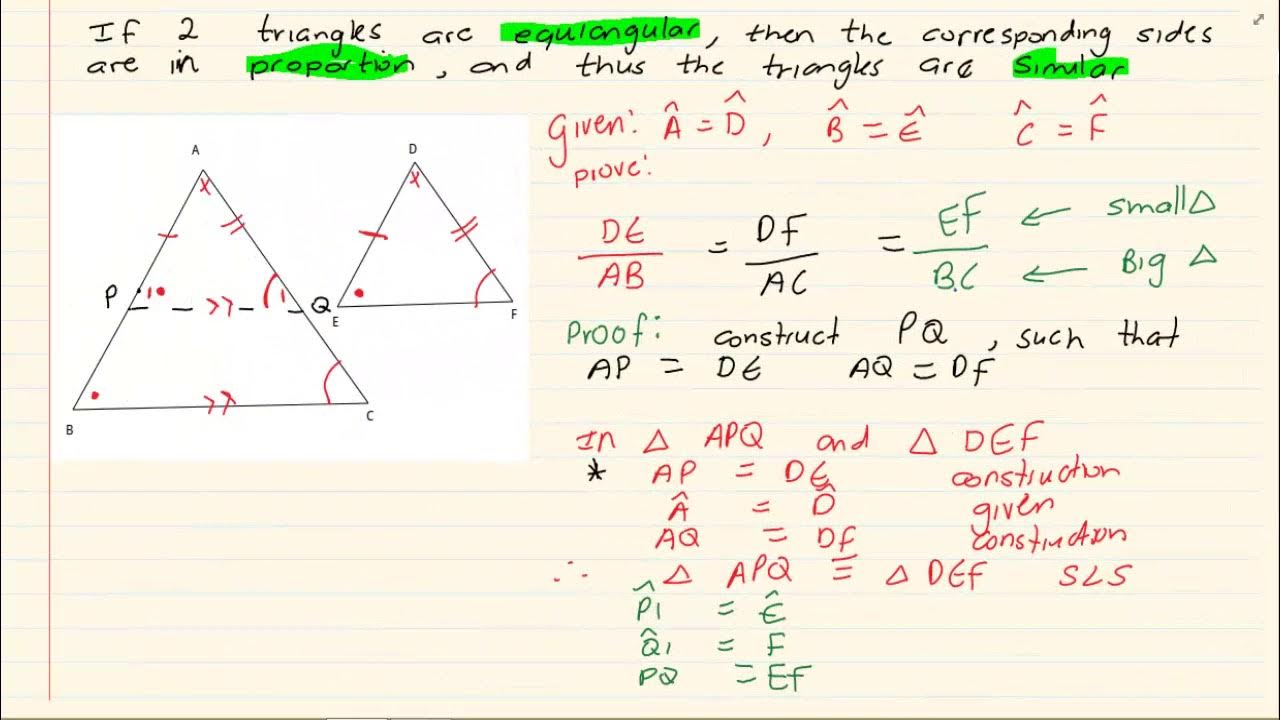 If 2 triangles are equiangular, then the corresponding sides
are in proportion, and thus the triangles are similar
Given: Â = D̂, B̂ = Ê Ĉ = F̂
prove:
DE/AB = DF/AC = EF/BC ← small Δ ← Big Δ
A
D
P 1 1 Q
E
F
B
C
Proof: construct PQ, such that
AP = DE AQ = DF
In Δ APQ and Δ DEF
* AP = DE construction
Â = D̂ given
AQ = DF construction
∴ Δ APQ ≡ Δ DEF S∠S
P̂1 = Ê
Q̂1 = F
PQ = EF